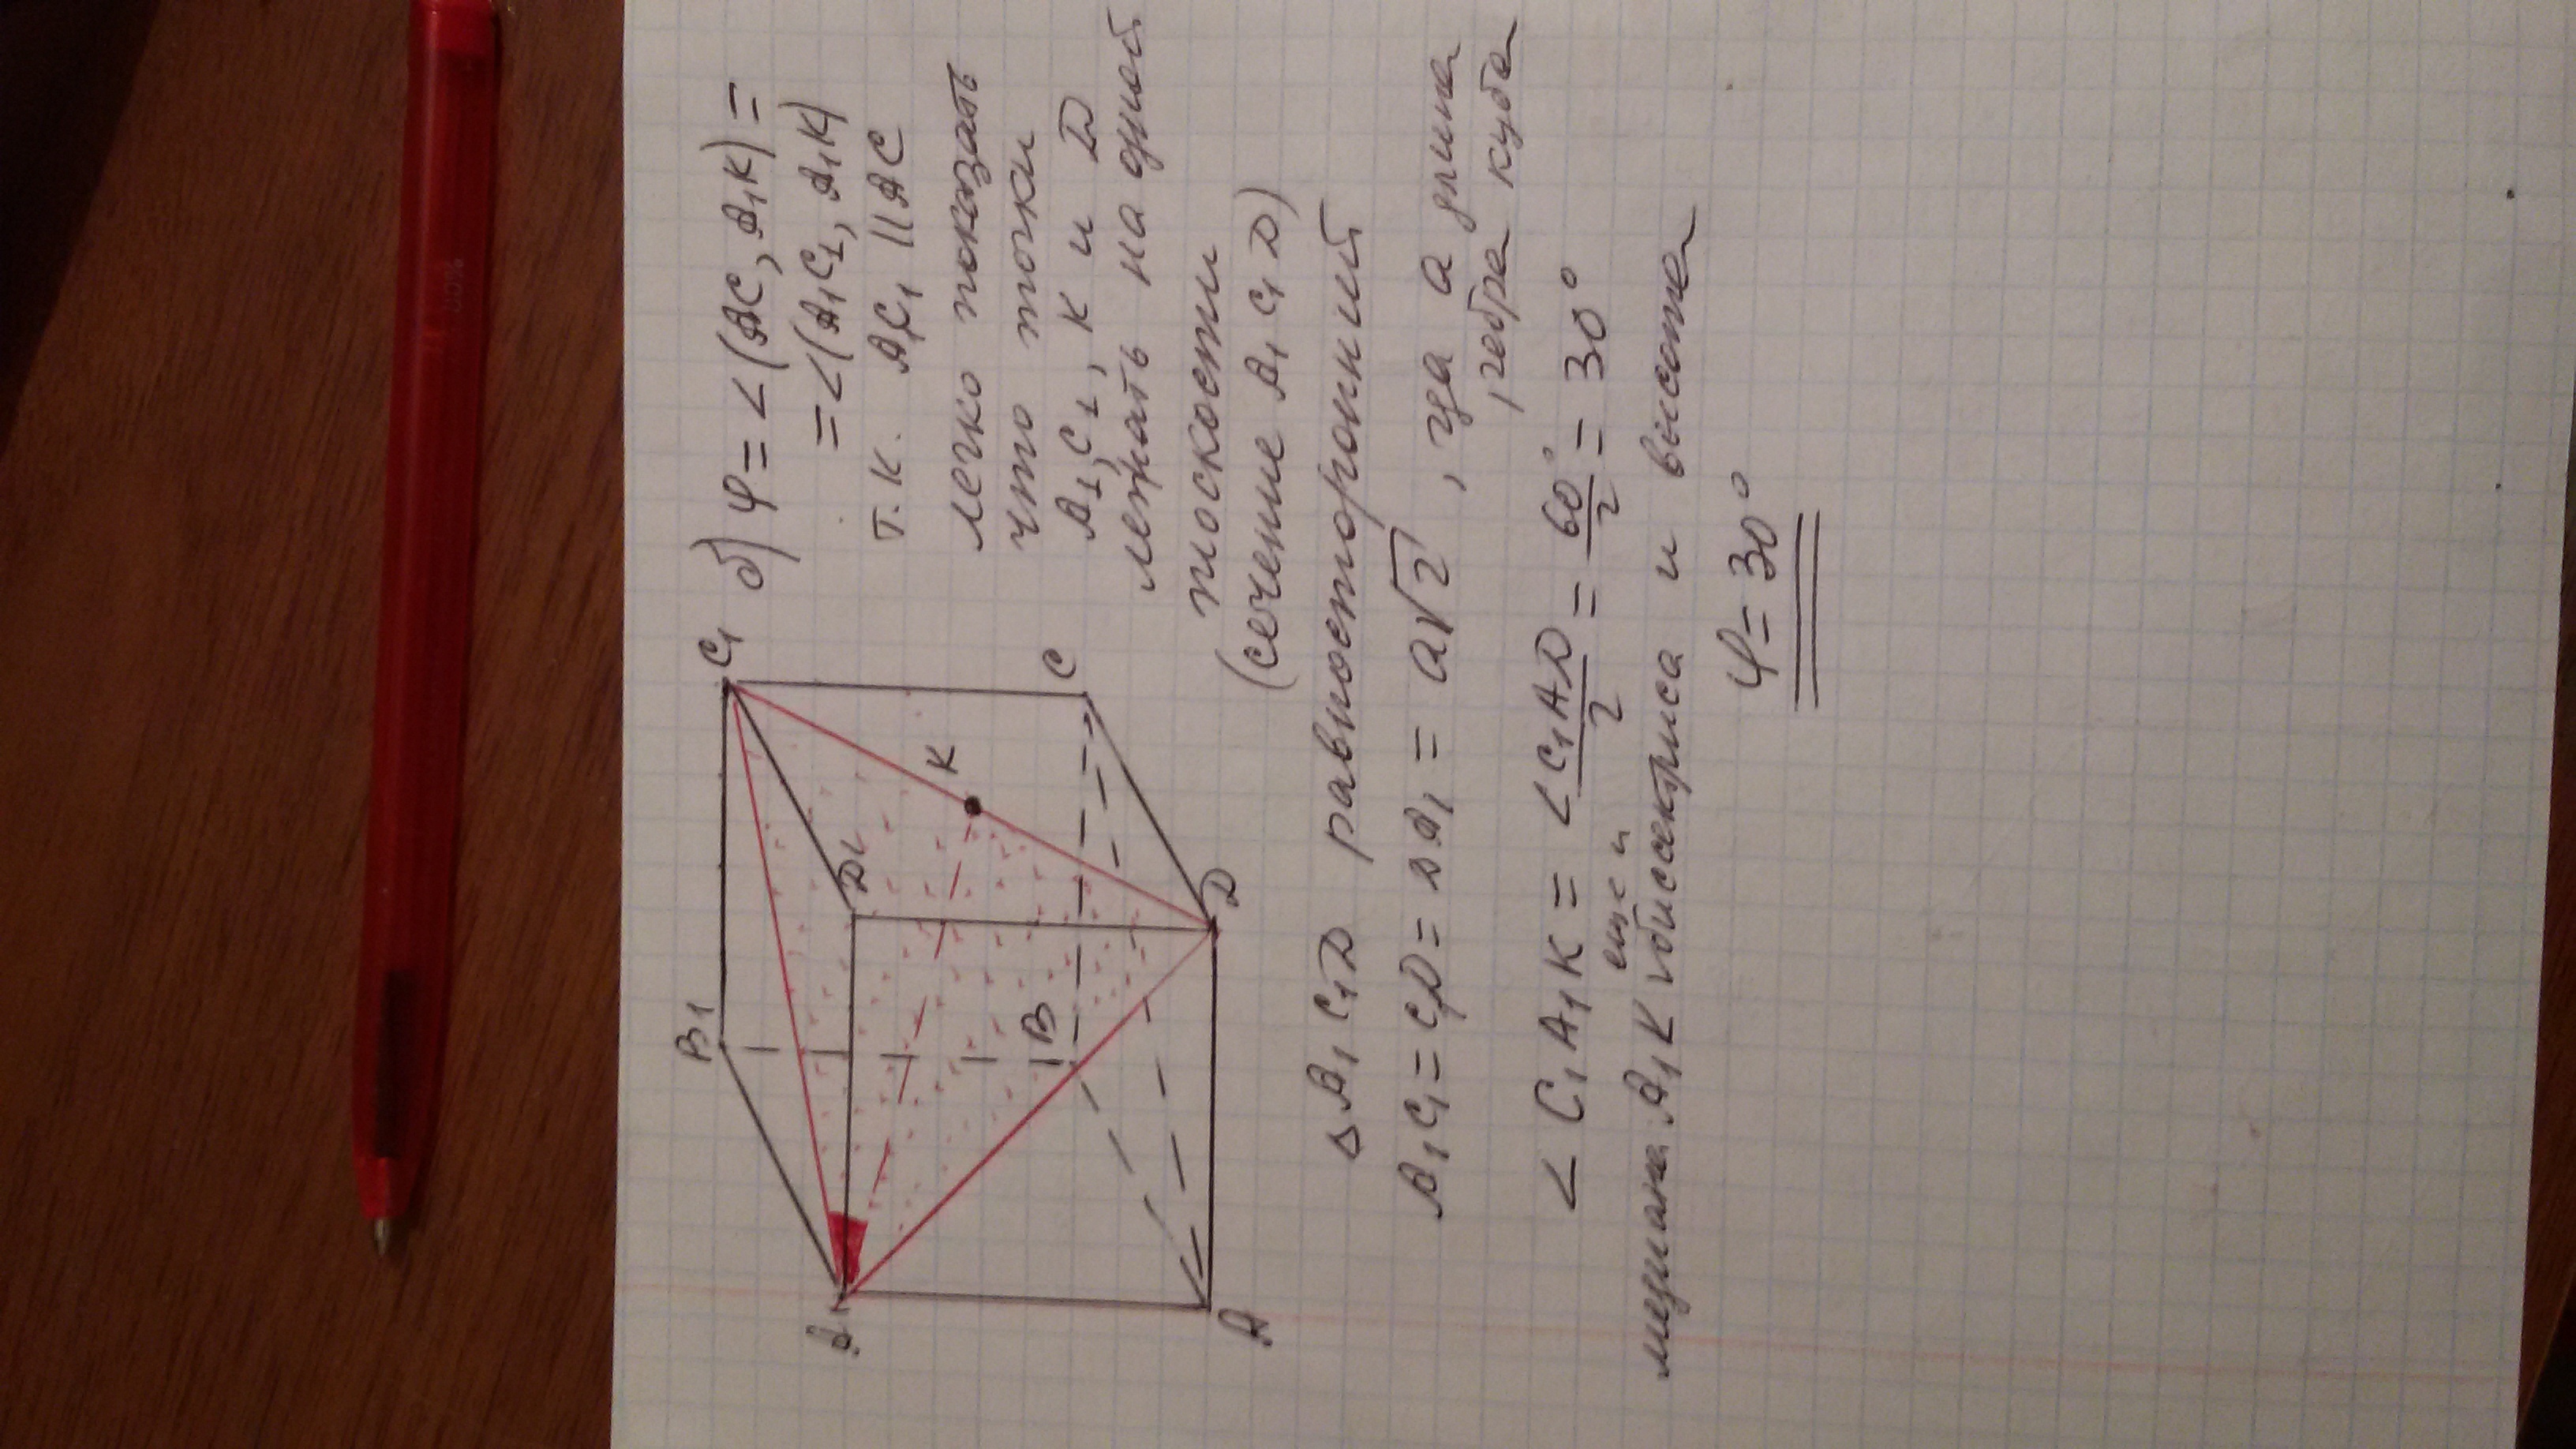 B1
C1
A1
D1
K
B
C
A
D
б) φ = ∠(AC, A1K) =
= ∠(A1C1, A1K)
т.к. A1C1 || AC
легко показать
что точки
A1, C1, K и D
лежать на одной
плоскости
(сечение A1C1D)
Δ A1C1D равносторонний
A1C1 = C1D = DA1 = a√2, где a длина
ребра куба
∠C1A1K = ∠C1AD/2 = 60°/2 = 30°
еще и
медиана A1K √биссектриса и высота
φ = 30°